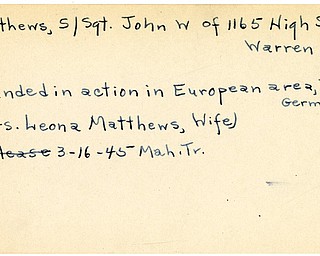 thews, S/Sgt. John W of 1165 High S
Warren
nded in action in European area,
Germ
s. Leona Matthews, Wife)
lease 3-16-45 Mah. Tr.